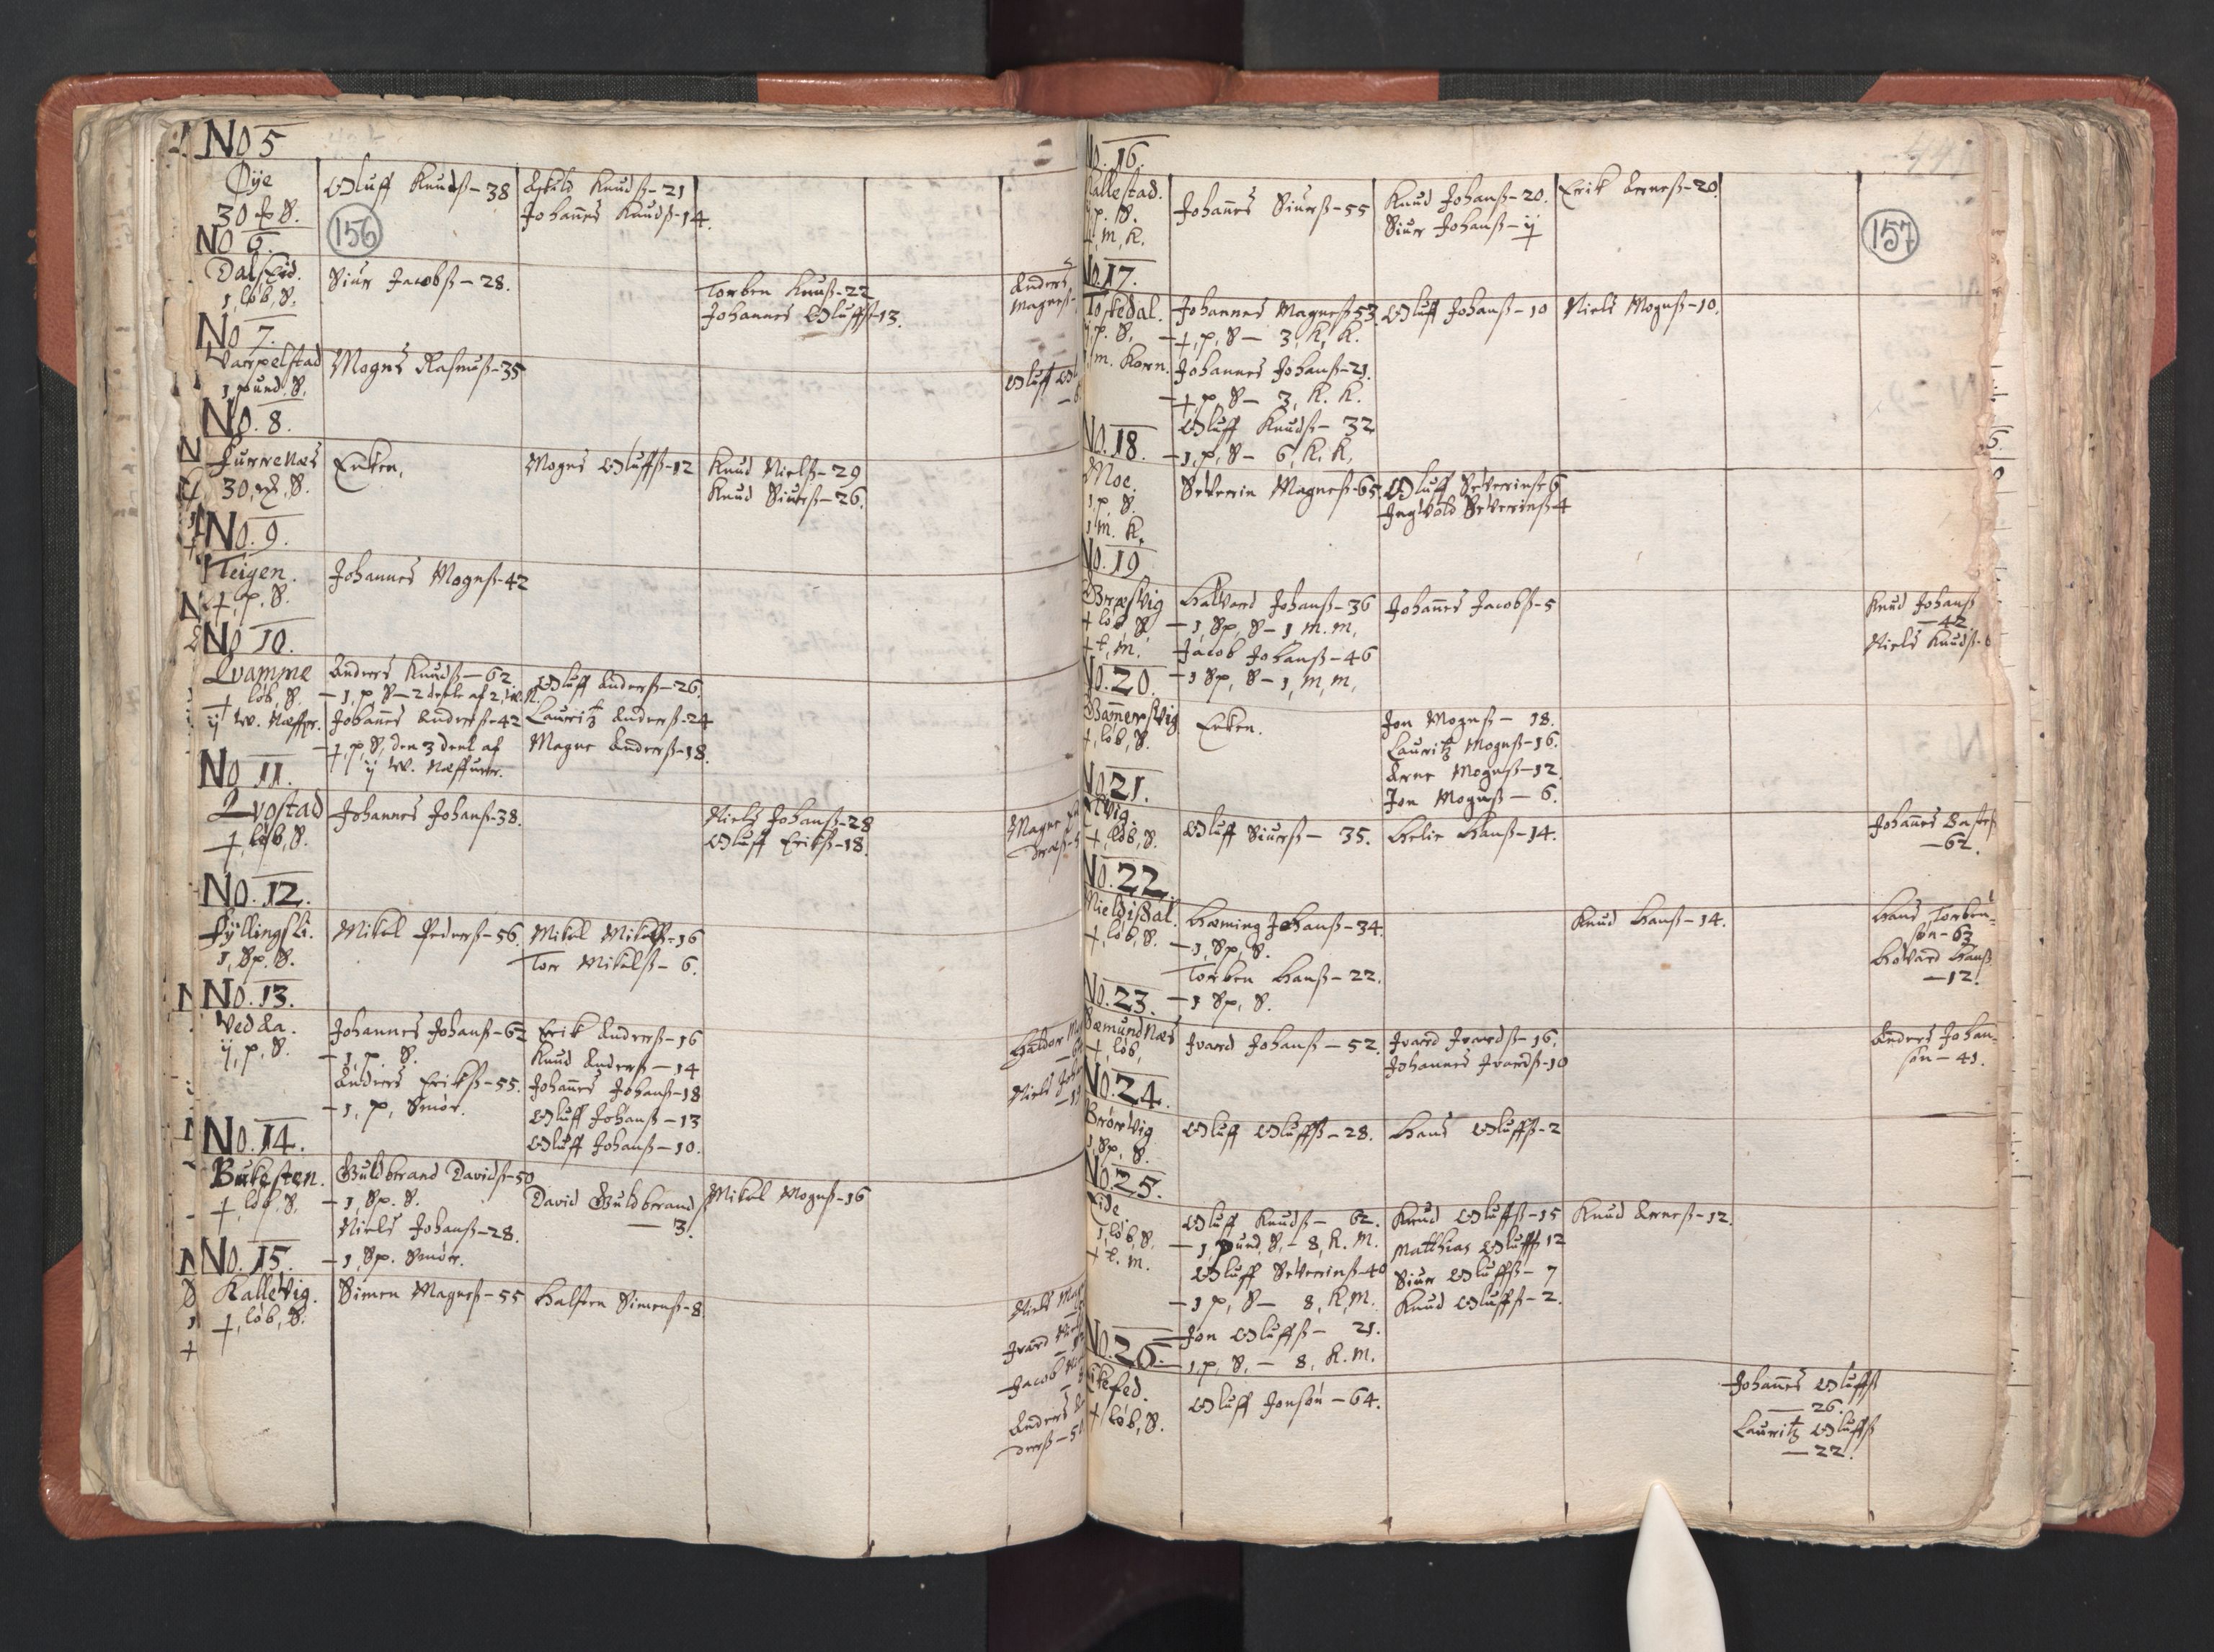 No 5
Øye
30 ℔ S.
Oluff Knudß - 38
Eskild Knudß - 21
Johannes Knudß - 14.
156
No 6.
Dalseid.
1, løb, S.
Siur Jacobß - 28.
Torben Knuß - 22
Johannes Oluffß - 13.
Anders
Magneß -
No 7.
Varpelstad
1, pund, S.
Mogns Rasmuß - 35
Oluff Ol
No. 8.
Furrenæs
30, ℔, S.
Enken.
Mogns Oluffß - 12
Knud Nielß - 29
Knud Siurß - 26.
No. 9.
Teigen.
+, p. S.
Johannes Mognß - 42
No 10.
Qvamme
+ løb, S.
ij W. Næffr.
Anders Knudß - 62
- 1, p S - 2 deele af 2, W. N.
Johanes Anderß - 42
- +, p, S, den 3 deel af
ij W. Næffuer.
Oluff Anderß - 26.
Lauritz Anderß - 24
Magne Anderß - 18.
No 11.
Qvostad
+, løb, S.
Johannes Johanß - 38.
Niels Johanß - 28
Oluff Erikß - 18.
Magne
No. 12.
Fyllingsli.
1, Sp. S.
Mikel Pederß - 56.
Mikel Mikelß - 16
Tor Mikelß - 6.
No. 13.
Vedaa.
ij, p, S.
Johannes Johanß - 62
- 1, p. S.
Anders Erikß - 55.
- 1, p, Smør.
Erik Anderß - 16
Knud Anderß - 14
Johanes Johanß - 18
Oluff Johanß - 13
Oluff Johanß - 10.
Haldor
Niels Johan
No. 14.
Bukesten.
+, løb, S.
Guldbrand Davidß - 50
- 1, Sp. S.
Niels Johanß - 28.
- 1, Sp. Smør.
David Guldbrandß
- 3.
Mikel Mognß - 16
No. 15.
Kallevig.
+, løb, S.
Simen Magneß - 55
Halsten Simenß - 8.
Niels
Ivard
Jacob
Anders
derß - 5
No. 16.
Kallestad.
p. S.
m, K.
Johanes Siurß - 55
Knud Johanß - 20.
Siur Johanß - ij
Erik Arneß - 20.
157
No. 17.
Toskedal.
p. S.
m. Korn.
Johannes Magneß 53.
- +, p, S - 3, K, K.
Johannes Johanß - 21.
- +, p, S - 3, K. K.
Oluff Knudß - 32
- 1, p, S - 6, K, K.
Oluff Johanß - 10
Niels Mognß - 10.
No. 18.
Moe.
1, p. S.
1 m. K.
Severin Magneß - 65.
Oluff Severinß 6
Ingvold Severinß - 4
No. 19
Bræsvig
+ løb, S.
+ t, m.
Halvard Johanß - 36
- 1, Sp, S - 1 m. m.
Jacob Johanß - 46
- 1 Sp, S - 1, m, m,
Johanes Jacobß - 5
Knud Johanß
- 42.
Niels Knudß -
No. 20.
Bamersvig
+, løb, S.
Enken.
Jon Mognß - 18.
Lauritz Mognß - 16.
Arne Mognß - 12.
Jon Mognß - 6.
No. 21.
+, løb, S.
Oluff Siurß - 35.
Helie Hanß - 14.
Johanes
- 62.
No. 22.
Mieldisdal.
+, løb, S.
Heming Johanß - 34.
- 1, Sp, S.
Torben Hanß - 22.
- 1 Sp, S.
Knud Hanß - 14.
Hans Torben-
søn - 63
Hovard Hanß
- 12.
No. 23.
Sæmundnæs
+, løb,
Ivard Johanß - 52.
Ivard Ivardß - 16.
Johannes Ivardß - 10
Anders Johan-
søn - 41.
No. 24.
Brørvig
1, Sp, S.
Oluff Oluffß - 28.
Hans Oluffß - 2
No. 25.
Eide
1, løb, S.
+ t. m.
Oluff Knudß - 62.
- 1, pund, S, - 8, K. M.
Oluff Severinß - 40
- 1 p, S - 8, K, M.
Jon Oluffß - 21.
1, p, S, - 8, K. M.
Knud Oluffß - 15
Matthias Oluffß 12
Siur Oluffß - 7
Knud Oluffß - 2.
Knud Arneß - 12.
No. 26.
+ løb, S.
Oluff Jonsøn - 64.
Johanes Oluffß
- 26.
Lauritz Oluffß
- 22.